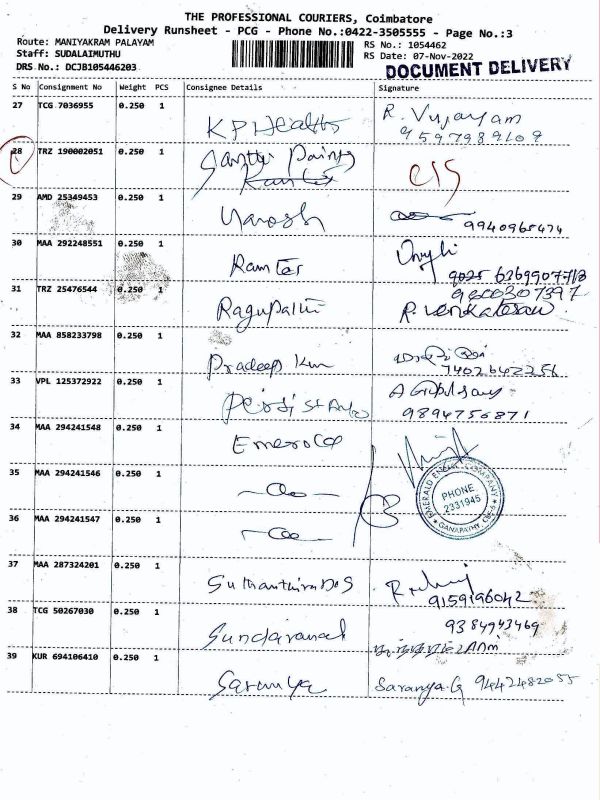 THE PROFESSIONAL COURIERS, Coimbatore
Delivery Runsheet - PCG - Phone No.:0422-3505555 - Page No.:3
Route: MANIYAKRAM PALAYAM RS No.: 1054462
Staff: SUDALAIMUTHU RS Date: 07-Nov-2022
DRS No.: DCJB105446203 DOCUMENT DELIVERY
S No Consignment No Weight PCS Consignee Details Signature
27 TCG 7036955 0.250 1 R. Vijayam
KP Health 9597989109
28 TRZ 190002051 0.250 1
29 AMD 25349453 0.250 1
9940965474
30 MAA 292248551 0.250 1
Ramter
31 TRZ 25476544 0.250 1 9600307397
Ragupathi R. Venkatesan
32 MAA 858233798 0.250 1
Pradeep Kum 7402642256
33 VPL 125372922 0.250 1
9894756871
34 MAA 294241548 0.250 1
Emerold
35 MAA 294241546 0.250 1
EMERALD ENGG. COMPANY
PHONE
2331945
GANAPATHY, CBE-6
36 MAA 294241547 0.250 1
37 MAA 287324201 0.250 1
9159196042
38 TCG 50267030 0.250 1 9384943469
39 KUR 694106410 0.250 1
Saranya Saranya.G 9442482055